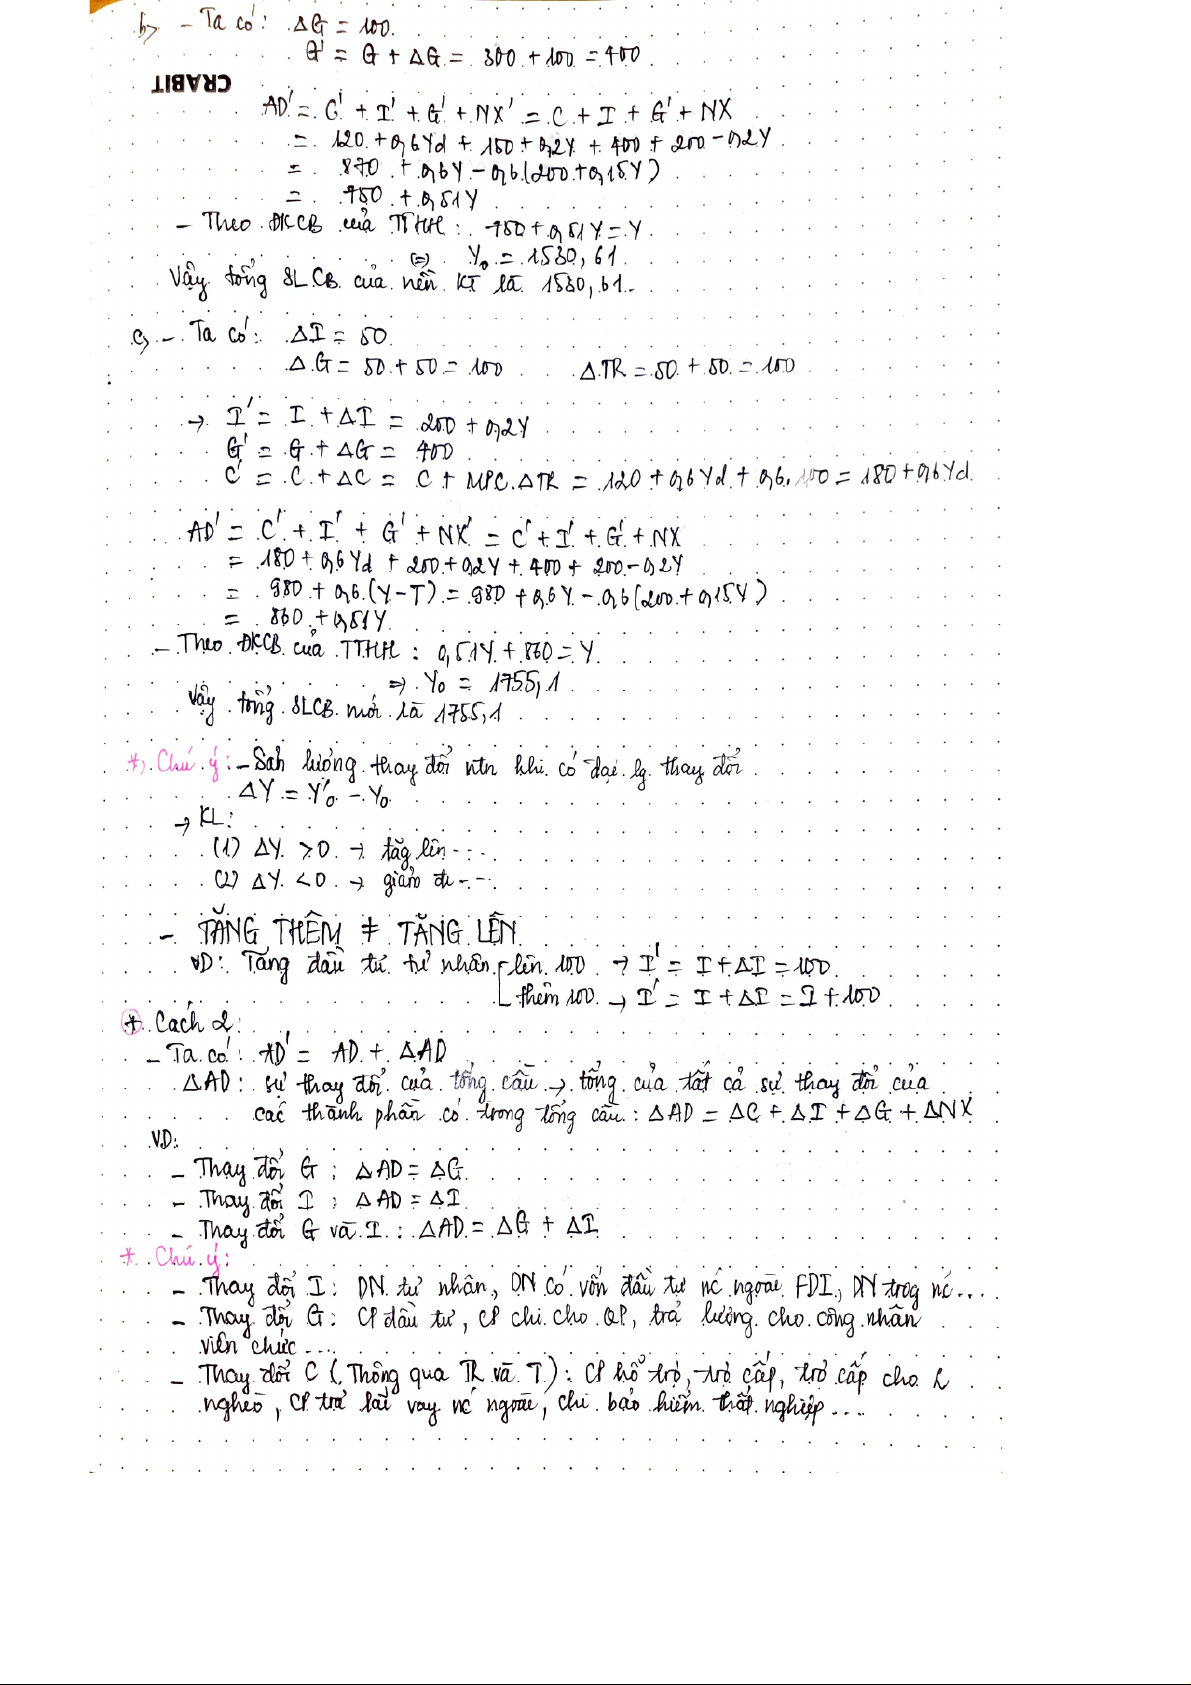 b, - Ta có: ΔG = 100.
G' = G + ΔG = 300 + 100 = 400
CRABIT
AD' = C' + I' + G' + NX' = C + I + G' + NX
= 120 + 0,6Yd + 150 + 0,2Y + 400 + 200 - 0,2Y
= 870 + 0,6Y - 0,6(200 + 0,15Y)
= 750 + 0,51Y
- Theo ĐKCB của TTHH: 750 + 0,51Y = Y
(=) Y₀ = 1530,61
Vậy tổng SLCB của nền KT là 1530,61.
c, - Ta có: ΔI = 50
ΔG = 50 + 50 = 100 ΔTR = 50 + 50 = 100
→ I' = I + ΔI = 200 + 0,2Y
G' = G + ΔG = 400
C' = C + ΔC = C + MPC.ΔTR = 120 + 0,6Yd + 0,6.100 = 180 + 0,6Yd
AD' = C' + I' + G' + NX' = C' + I' + G' + NX
= 180 + 0,6Yd + 200 + 0,2Y + 400 + 200 - 0,2Y
= 980 + 0,6.(Y-T) = 980 + 0,6Y - 0,6(200 + 0,15Y)
= 860 + 0,51Y
- Theo ĐKCB của TTHH: 0,51Y + 860 = Y
=> Y₀ = 1755,1
Vậy tổng SLCB mới là 1755,1
*) Chú ý: - Sản lượng thay đổi ntn khi có đại lg thay đổi
ΔY = Y'₀ - Y₀
→ KL:
(1) ΔY > 0 → tăg lên ...
(2) ΔY < 0 → giảm đi ...
- TĂNG THÊM ≠ TĂNG LÊN
VD: Tăng đầu tư tư nhân lên 100 → I' = I + ΔI = 100
thêm 100 → I' = I + ΔI = I + 100
* Cách 2:
- Ta có: AD' = AD + ΔAD
ΔAD: sự thay đổi của tổng cầu → tổng của tất cả sự thay đổi của
các thành phần có trong tổng cầu: ΔAD = ΔC + ΔI + ΔG + ΔNX
VD:
- Thay đổi G : ΔAD = ΔG
- Thay đổi I : ΔAD = ΔI
- Thay đổi G và I : ΔAD = ΔG + ΔI
* Chú ý:
- Thay đổi I : DN tư nhân, DN có vốn đầu tư nc ngoài FDI, DN trog nc....
- Thay đổi G: CP đầu tư, CP chi cho QP, trả lương cho công nhân
viên chức....
- Thay đổi C (Thông qua TR và T): CP hỗ trợ, trợ cấp, trợ cấp cho
nghèo, CP trả lãi vay nc ngoài, chi bảo hiểm thất nghiệp....